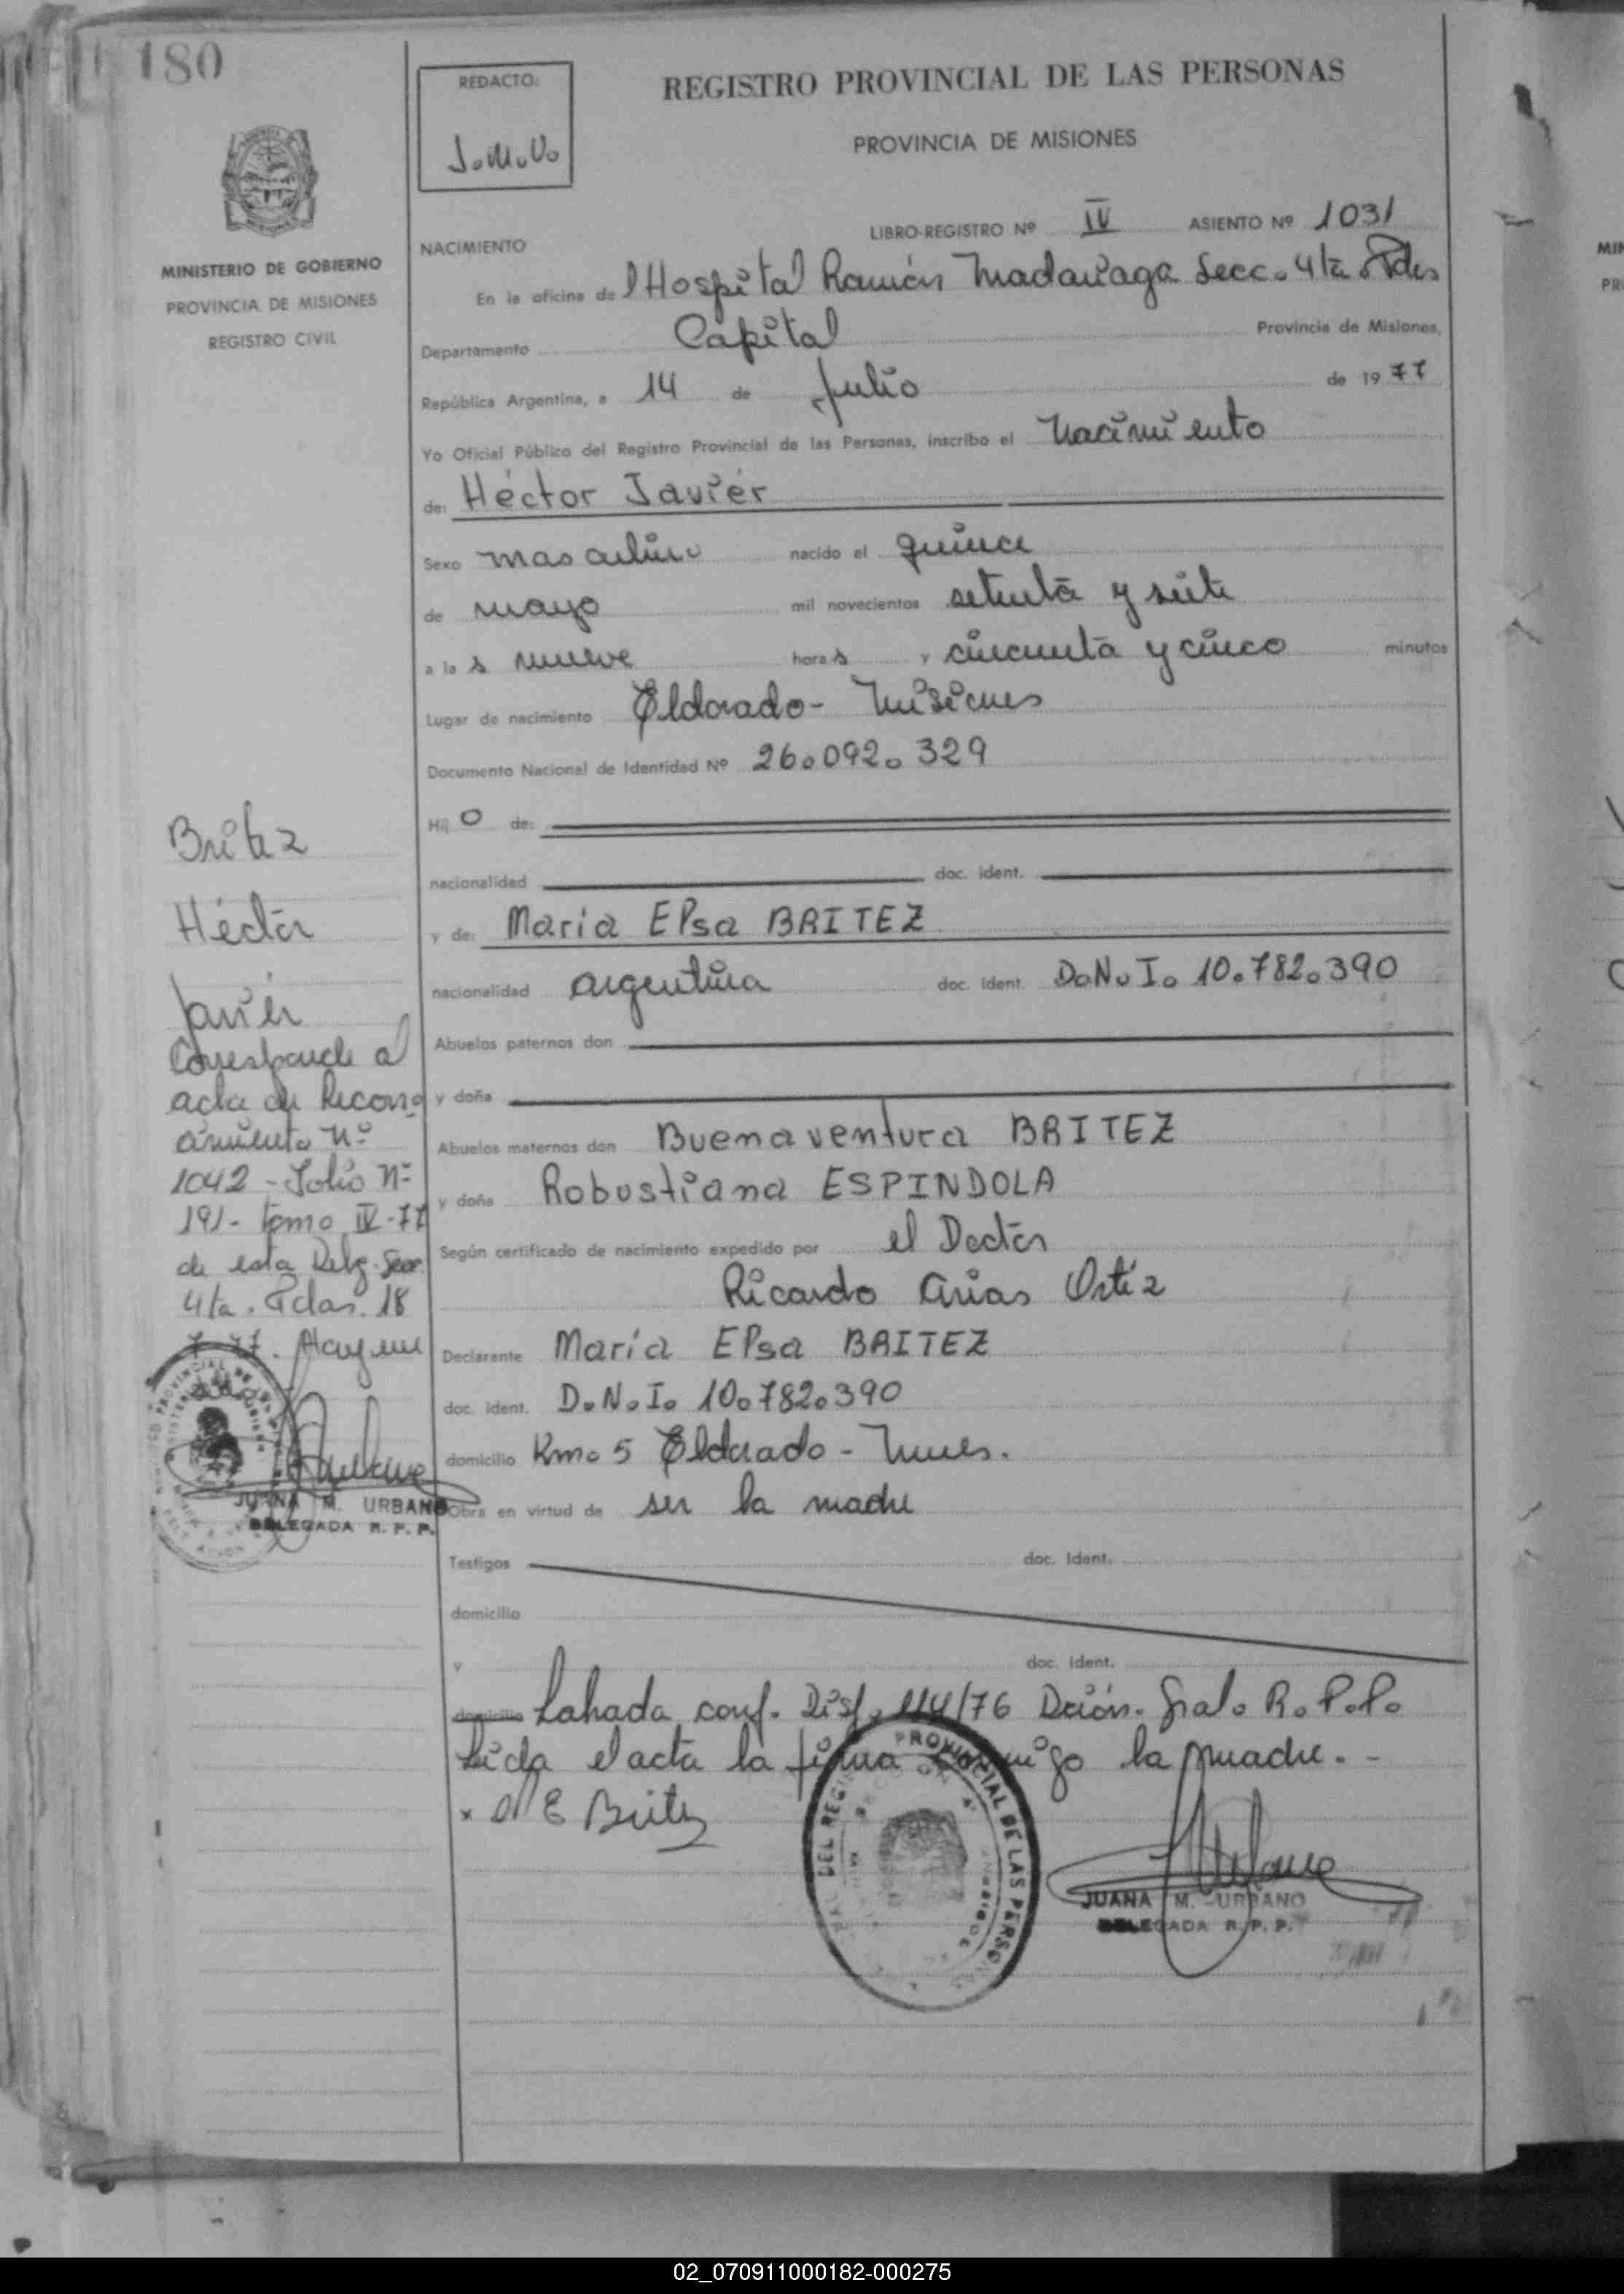 180
REDACTO:
J.M.U.
REGISTRO PROVINCIAL DE LAS PERSONAS
PROVINCIA DE MISIONES
LIBRO-REGISTRO Nº IV ASIENTO Nº 1031
MINISTERIO DE GOBIERNO
PROVINCIA DE MISIONES
REGISTRO CIVIL
NACIMIENTO
En la oficina de l Hospital Ramón Madariaga Secc. 4ta. Pdas
Departamento Capital Provincia de Misiones,
República Argentina, a 14 de Julio de 1977
Yo Oficial Público del Registro Provincial de las Personas, inscribo el Nacimiento
de: Héctor Javier
Sexo masculino nacido el quince
de mayo mil novecientos setenta y siete
a las nueve horas y cincuenta y cinco minutos
Lugar de nacimiento Eldorado- Misiones
Documento Nacional de Identidad Nº 26.092.329
Hijo de:
nacionalidad doc. ident.
y de: María Elsa BRITEZ
nacionalidad argentina doc. ident. D.N.I. 10.782.390
Abuelos paternos don
y doña
Abuelos maternos don Buenaventura BRITEZ
y doña Robustiana ESPINDOLA
Según certificado de nacimiento expedido por el Doctor
Ricardo Arias Ortíz
Declarante María Elsa BRITEZ
doc. ident. D.N.I. 10.782.390
domicilio Km. 5 Eldorado - Mnes.
Obra en virtud de ser la madre
Testigos doc. ident.
domicilio
y doc. ident.
domicilio Labrada conf. Disp. 114/76 Dción. Gral. R.P.P.
Leida el acta la firma conmigo la madre. -
x M E Britez
DEL REGISTRO PROVINCIAL DE LAS PERSONAS
JUANA M. URBANO
DELEGADA R. P. P.
Britez
Héctor
Javier
Corresponde al
acta de Recono
cimiento Nº
1042 - Folio Nº
191- tomo IV-77
de esta Deleg. Secc
4ta. Pdas. 18
7-77.
JUANA M. URBANO
DELEGADA R. P. P.
MIN
PR
02_070911000182-000275